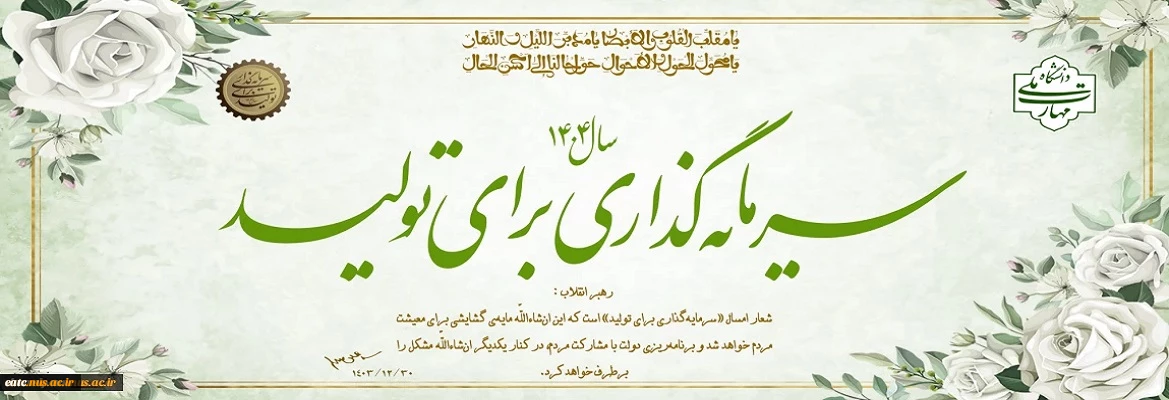 یا مقلب القلوب و الابصار یا مدبر اللیل و النهار
یا محول الحول و الاحوال حول حالنا الی احسن الحال
دانشگاه
ملی
مهارت
سرمایه‌گذاری
برای
تولید
سال ۱۴۰۴
سرمایه‌گذاری برای تولید
رهبر انقلاب :
شعار امسال «سرمایه‌گذاری برای تولید» است که این ان‌شاءاللّه مایه‌ی گشایشی برای معیشت
مردم خواهد شد و برنامه‌ریزی دولت با مشارکت مردم، در کنار یکدیگر ان‌شاءاللّه مشکل را
برطرف خواهد کرد.
۱۴۰۳/۱۲/۳۰
eatc.nus.ac.ir